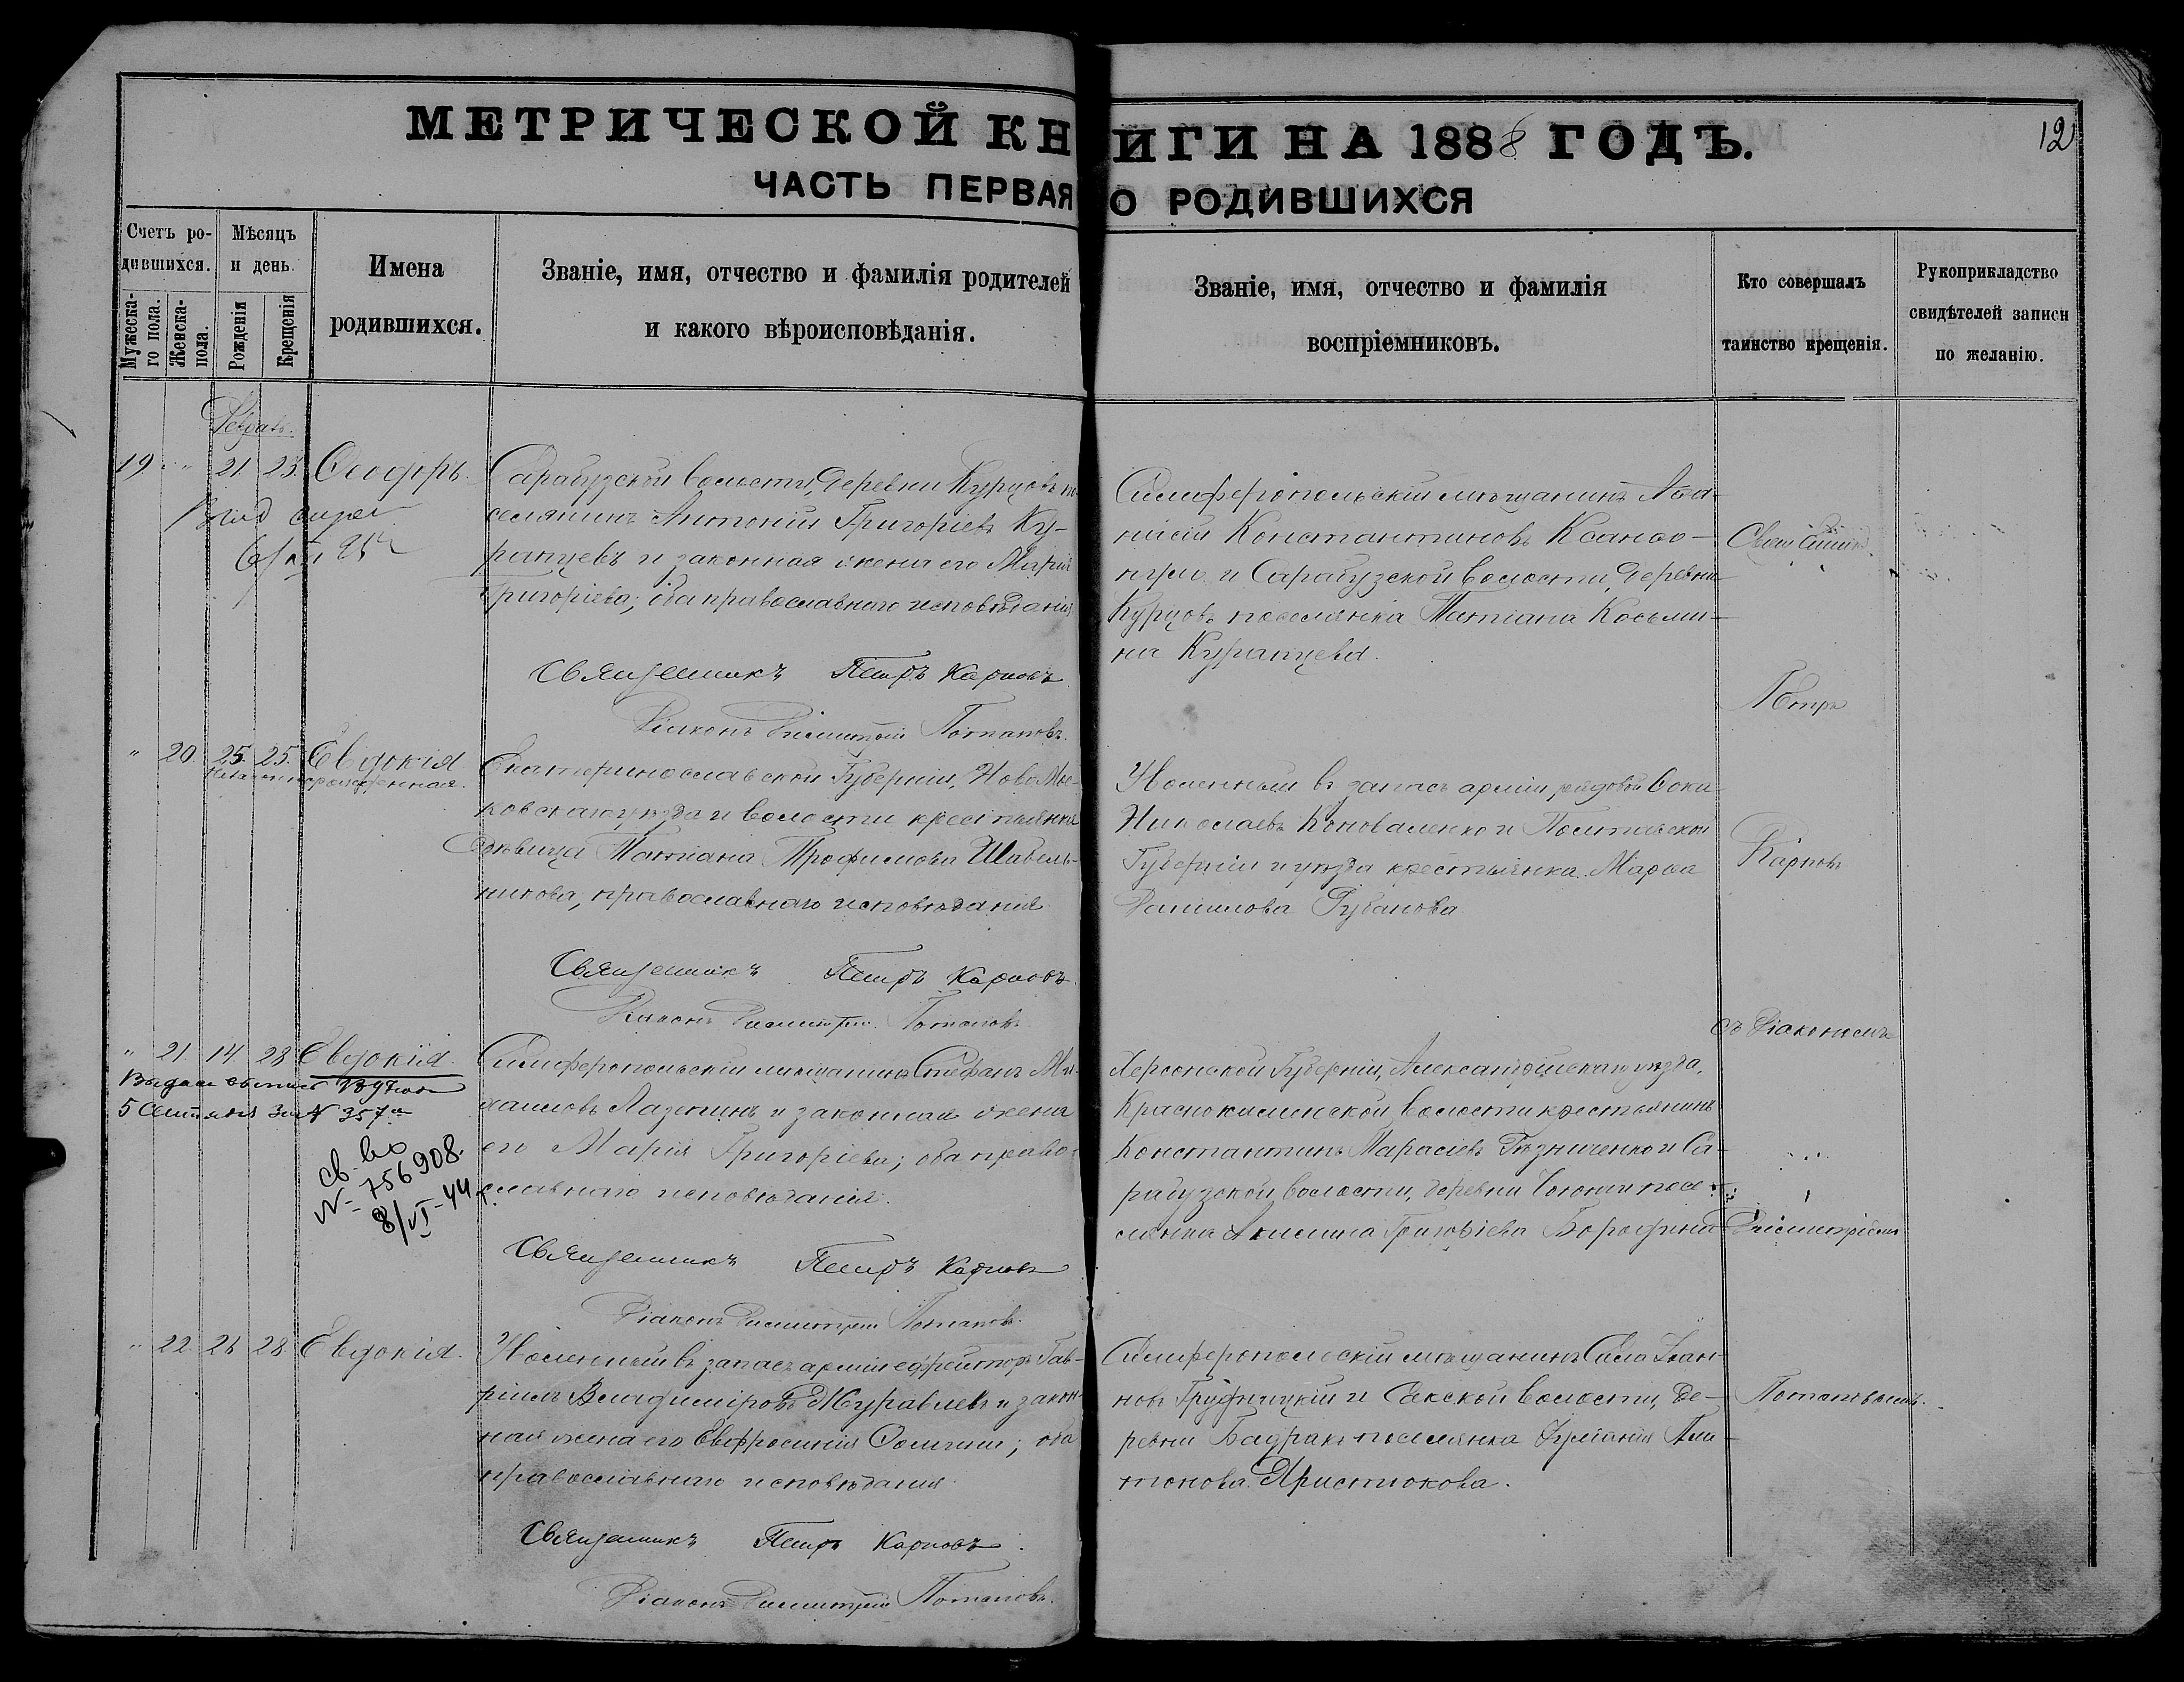 МЕТРИЧЕСКОЙ КНИГИ НА 1888 ГОДЪ.
12
ЧАСТЬ ПЕРВАЯ О РОДИВШИХСЯ
Счетъ родившихся.
Мужескаго пола.
Женска- пола.
Мѣсяцъ и день.
Рожденія
Крещенія
Имена
родившихся.
Званіе, имя, отчество и фамилія родителей
и какого вѣроисповѣданія.
Званіе, имя, отчество и фамилія
воспріемниковъ.
Кто совершалъ
таинство крещенія.
Рукоприкладство
свидѣтелей записи
по желанію.
Февраль.
19 " 21. 23. Ѳеодоръ.
Сарабузской волости, деревни Курцовъ по-
селянинъ Антоній Григоріевъ Ку-
ранцевъ и законная жена его Марія
Григоріева; оба православнаго исповѣданія
Священникъ Петръ Карповъ
Діаконъ Димитрій Потаповъ.
Симферопольскій мѣщанинъ
Константиновъ
и Сарабузской волости, деревни
Курцовъ поселянка Татіана Косьми-
на Куранцева.
" 20. 25. 25. Евдокія
незаконнорожденная.
Екатеринославской Губерніи, Новомос-
ковскаго уѣзда и волости крестьянка
дѣвица Татіана Трофимова Шабель-
никова, православнаго исповѣданія
Священникъ Петръ Карповъ.
Діаконъ Димитрій Потаповъ.
Уволенный въ запасъ арміи рядовой
Николаевъ Коноваленко и Полтавской
Губерніи и уѣзда крестьянка Марѳа
Даниилова Рубанова.
" 21. 14. 28. Евдокія
Выдана выпись 1897 года
5 Сентября за № 357м
св-во
№- 756908.
8/VI-44 г.
Симферопольскій мѣщанинъ Стефанъ Ми-
хаиловъ Лазепинъ и законная жена
его Марія Григоріева; оба право-
славнаго исповѣданія.
Священникъ Петръ Карповъ
Діаконъ Димитрій Потаповъ.
Херсонской Губерніи, Александрійскаго уѣзда,
Краснокаменской волости крестьянинъ
Константинъ Тарасіевъ и Са-
рабузской волости, деревни посе-
лянка Акилина Григоріева
" 22. 26 28 Евдокія.
Уволенный въ запасъ арміи ефрейторъ Гав-
ріилъ Владиміровъ Журавлевъ и закон-
ная жена его Евфросинія Ѳомина; оба
православнаго исповѣданія.
Священникъ Петръ Карповъ.
Діаконъ Димитрій Потаповъ.
Симферопольскій мѣщанинъ Савва Іоан-
новъ и Сакской волости, де-
ревни Бадракъ поселянка Іуліанія Пла-
тонова Христюкова.
Священникъ
Петръ
Карповъ
съ Діакономъ
Димитріемъ
Потаповымъ.